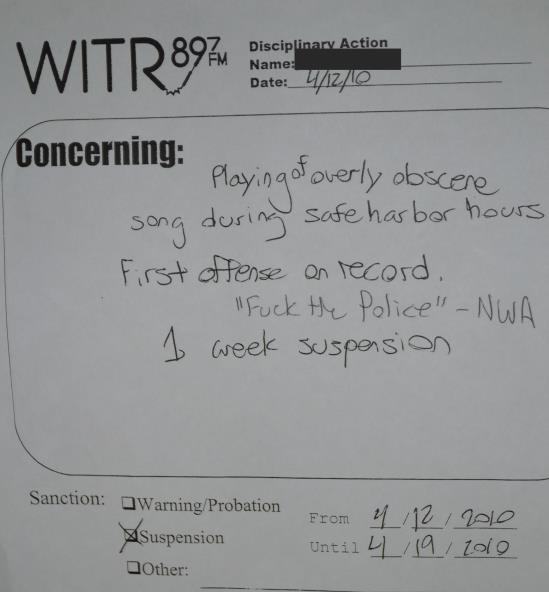 WITR 89.7 FM
Disciplinary Action
Name:
Date: 4/12/10
Concerning:
Playing of overly obscene
song during safe harbor hours
First offense on record.
"Fuck the Police" - NWA
1 week suspension
Sanction:
Warning/Probation
Suspension
Other:
From 4/12/2010
Until 4/19/2010